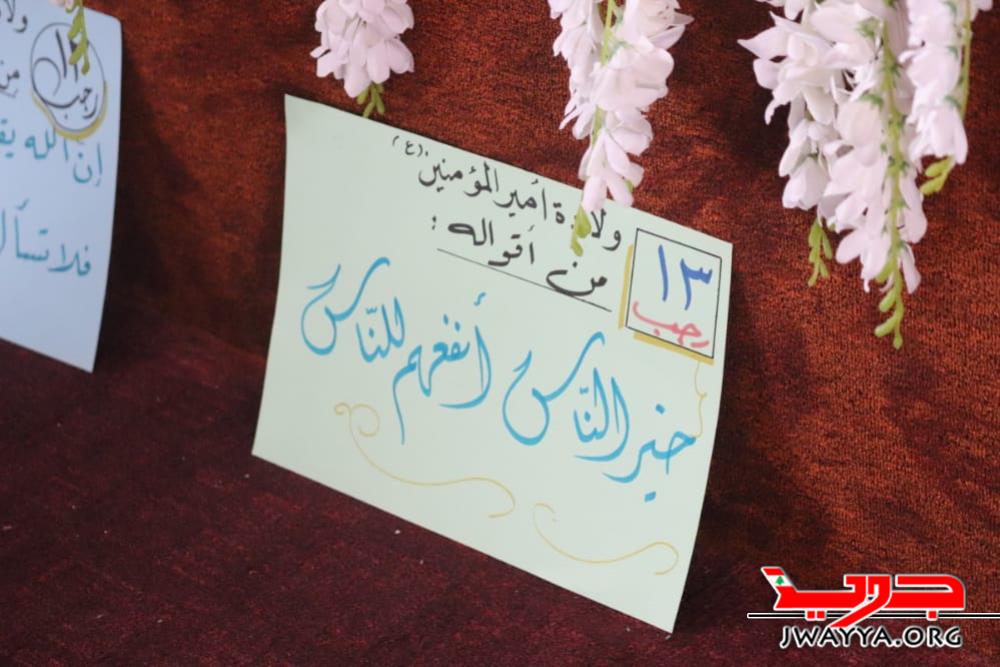 ولادة أمير المؤمنين (ع)
من أقواله:
١٣
رجب
خير الناس أنفعهم للناس
١٣
رجب
ولا
من
إن الله يق
فلا تسأل
جويا
JWAYYA.ORG